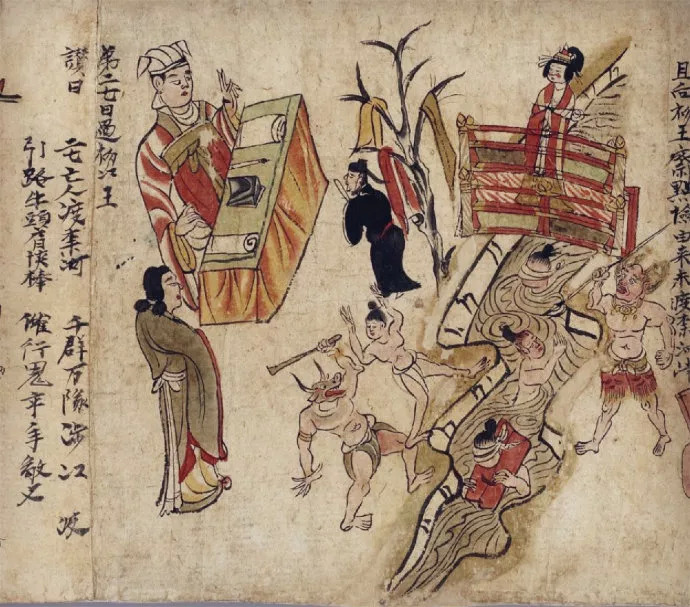 且向初王齋點檢由来未渡奈河
第二七日過初江王
讚曰 二七亡人渡奈河 千群万隊涉江波
引路牛頭肩挾棒 催行鬼卒手擎叉